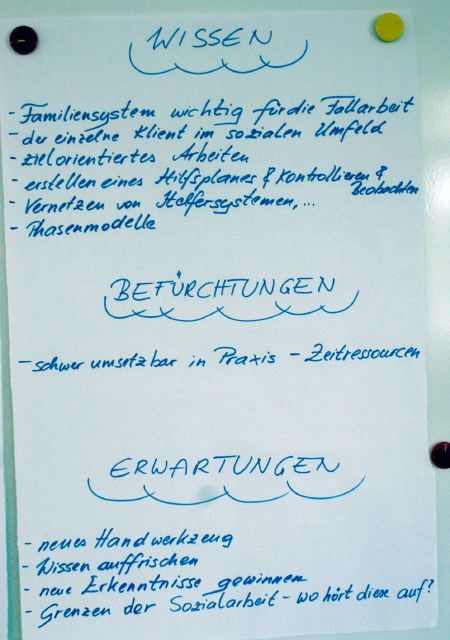 WISSEN
- Familiensystem wichtig für die Fallarbeit
- der einzelne Klient im sozialen Umfeld
- zielorientiertes Arbeiten
- erstellen eines Hilfsplanes & Kontrollieren & Beobachten
- Vernetzen von Helfersystemen, ...
- Phasenmodelle
BEFÜRCHTUNGEN
- schwer umsetzbar in Praxis - Zeitressourcen
ERWARTUNGEN
- neues Handwerkzeug
- Wissen auffrischen
- neue Erkenntnisse gewinnen
- Grenzen der Sozialarbeit - wo hört diese auf?